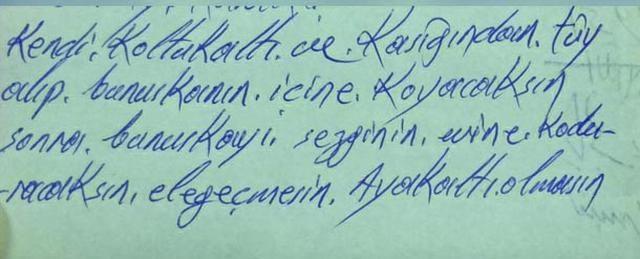 Kendi. Koltukaltı. ve. Kasığından. tüy
alıp. bunu Kanın. içine. Koyacaksın
sonra. bunu Kayi. sezginin. evine. Kodu-
-racaksın. elegeçmesin. Ayakaltı.olmasın